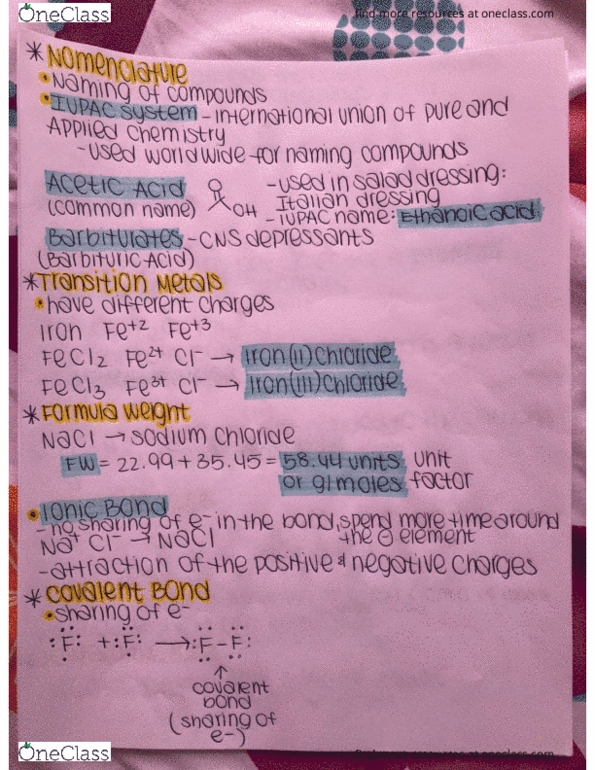 OneClass
find more resources at oneclass.com
* Nomenclature
• Naming of compounds
• IUPAC system - international union of pure and
Applied Chemistry
- used worldwide for naming compounds
Acetic Acid
(common name)
O
OH
- used in salad dressing:
Italian dressing
- IUPAC name: Ethanoic acid
Barbiturates - CNS depressants
(Barbituric Acid)
* Transition Metals
• have different charges
Iron Fe⁺² Fe⁺³
FeCl₂ Fe²⁺ Cl⁻ → Iron(II)Chloride
FeCl₃ Fe³⁺ Cl⁻ → Iron(III)Chloride
* Formula Weight
NaCl → Sodium Chloride
FW = 22.99 + 35.45 = 58.44 units unit
or g/moles factor
• Ionic Bond
- no sharing of e⁻ in the bond, spend more time around
the ⊖ element
Na⁺ Cl⁻ → NaCl
- attraction of the positive & negative charges
* Covalent Bond
• sharing of e⁻
:F: + :F: → :F-F:
↑
covalent
bond
(sharing of
e⁻)
OneClass
find more resources at oneclass.com